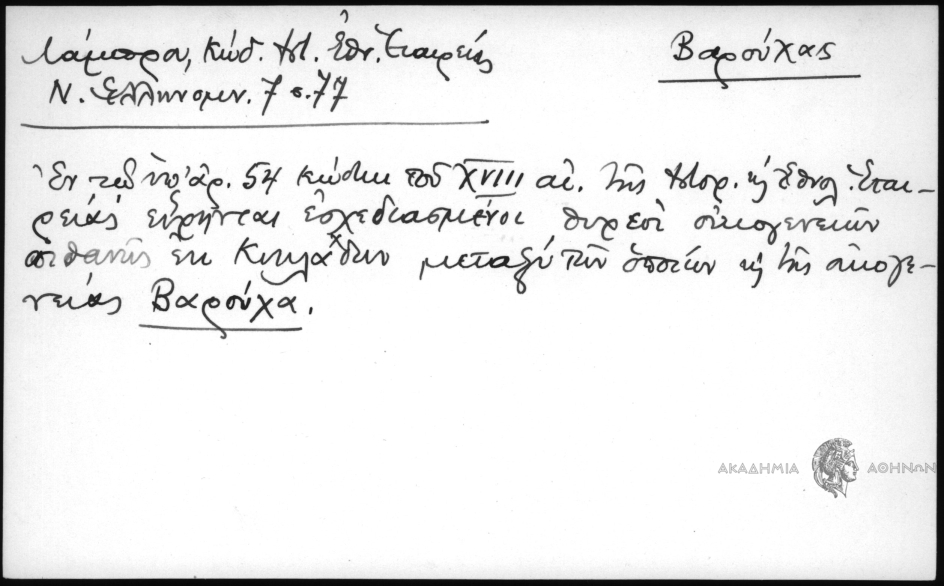 Λάμπρου, Κώδ. Ἱστ. Ἐθν. Ἑταιρείας
Βαρούχας
Ν. Ἑλληνομν. 7 σ. 77
Ἐν τῷ ὑπ' ἀρ. 54 κώδικι τοῦ XVIII αἰ. τῆς Ἱστορ. κ Ἐθνολ. Ἑται-
ρείας εὕρηνται ἐσχεδιασμένοι θυρεοὶ οἰκογενειῶν
πιθανῶς ἐκ Κυκλάδων μεταξὺ τῶν ὁποίων κ τῆς οἰκογε-
νείας Βαρούχα.
ΑΚΑΔΗΜΙΑ ΑΘΗΝΩΝ